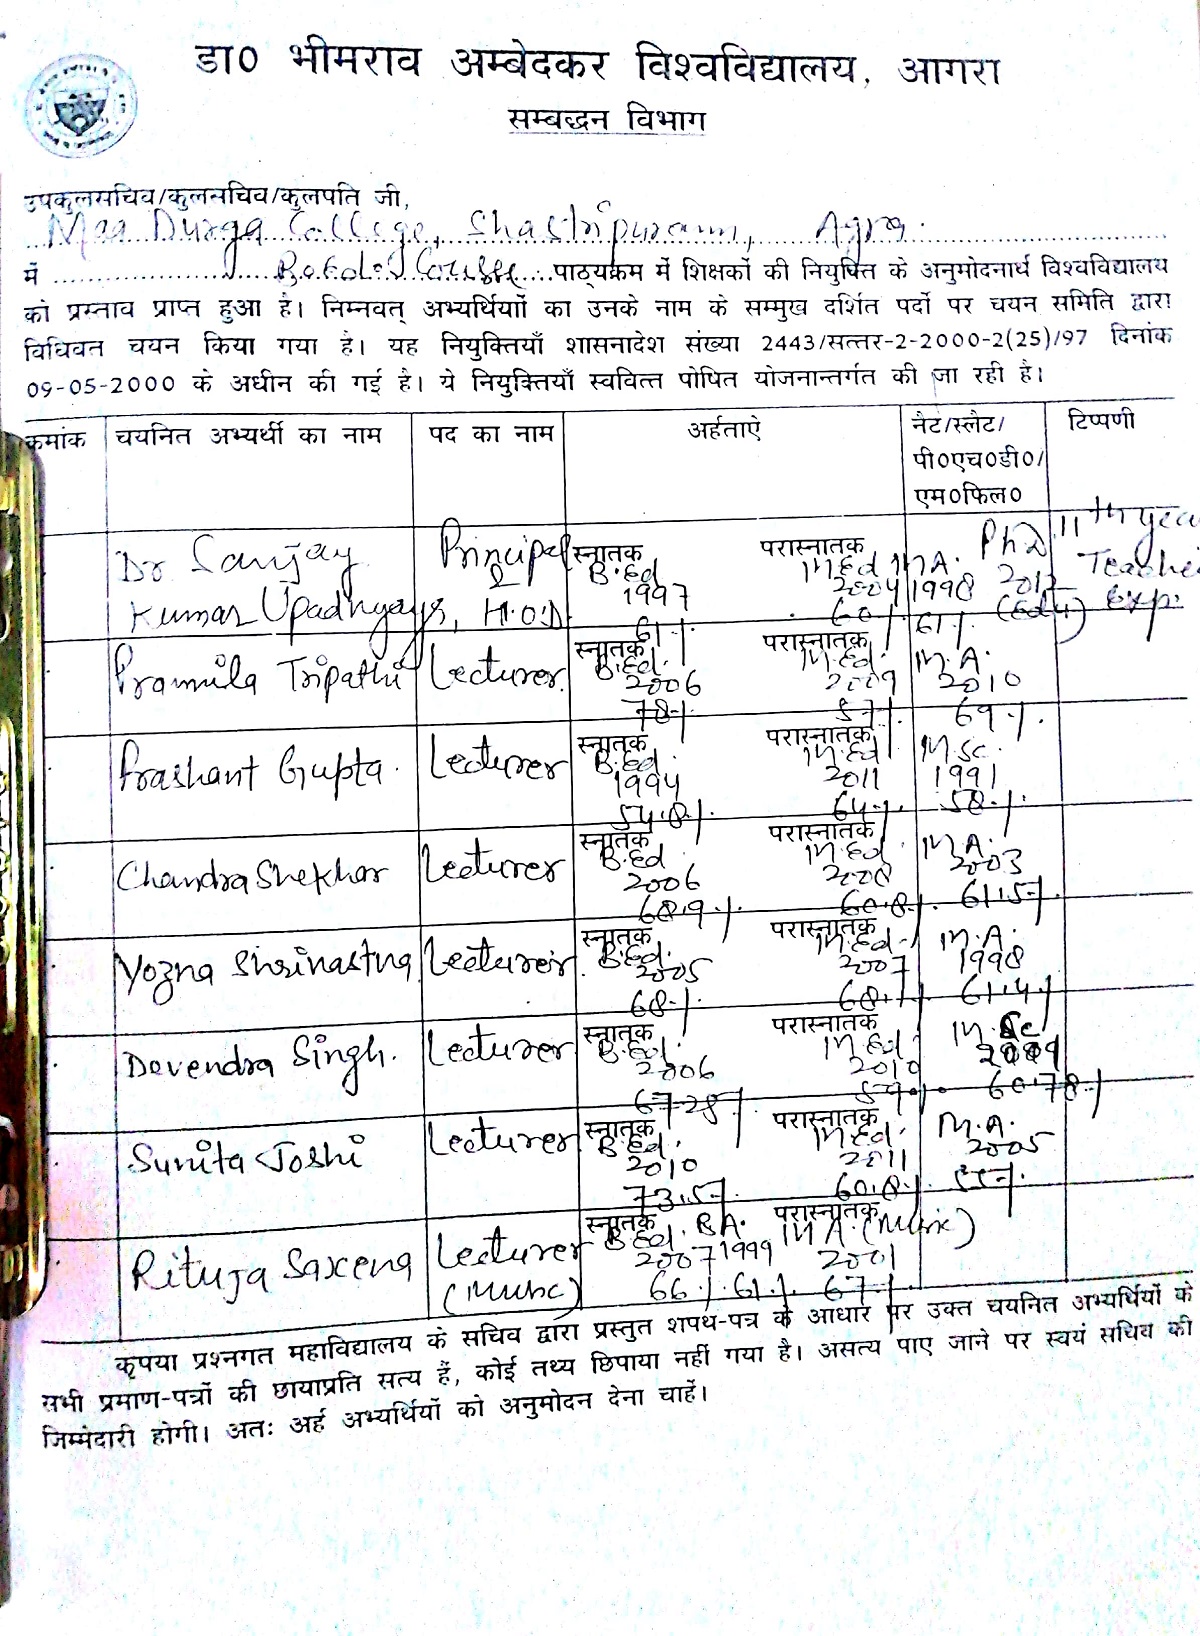 डा0 भीमराव अम्बेदकर विश्वविद्यालय, आगरा
सम्बद्धन विभाग
उपकुलसचिव/कुलसचिव/कुलपति जी,
Maa Durga College, Shastripuram, Agra.
में ........ B.Ed. Course पाठ्यक्रम में शिक्षकों की नियुक्ति के अनुमोदनार्थ विश्वविद्यालय
को प्रस्ताव प्राप्त हुआ है। निम्नवत् अभ्यर्थियों का उनके नाम के सम्मुख दर्शित पदों पर चयन समिति द्वारा
विधिवत चयन किया गया है। यह नियुक्तियाँ शासनादेश संख्या 2443/सत्तर-2-2000-2(25)/97 दिनांक
09-05-2000 के अधीन की गई है। ये नियुक्तियाँ स्ववित्त पोषित योजनान्तर्गत की जा रही है।
क्रमांक चयनित अभ्यर्थी का नाम पद का नाम अर्हताऐ नैट/स्लैट/ टिप्पणी
पी0एच0डी0/
एम0फिल0
Dr Sanjay Principal स्नातक परास्नातक Ph.D 11th year
& B.Ed M.Ed M.A. Teaching
1997 2004 1998 2012
Kumar Upadhyay, H.O.D 61% 60% 61% (Edu) Exp.
Pramila Tripathi Lecturer. स्नातक परास्नातक
B.Ed. M.Ed. M.A.
2006 2009 2010
78% 57% 69%.
Prashant Gupta. Lecturer स्नातक परास्नातक
B.Ed. M.Ed M.Sc.
1994 2011 1991
54.8% 64% 58%
Chandra Shekhar Lecturer स्नातक परास्नातक
B.Ed M.Ed M.A.
2006 2008 2003
68.9% 60.8% 61.5%
Yozna Shrinastna Lecturer. स्नातक परास्नातक
B.Ed. M.Ed M.A.
2005 2007 1998
68% 68.1% 61.4%
Devendra Singh. Lecturer स्नातक परास्नातक
B.Ed. M.Ed. M.Sc
2006 2010
67.28% 59% 60.78%
Sunita Joshi Lecturer स्नातक परास्नातक
B.Ed. M.Ed. M.A.
2010 2011 2005
73.5% 60.8% 55%.
Rituja Saxena Lecturer स्नातक परास्नातक
B.Ed. B.A. M.A. (Music)
2007 1999 2001
(Music) 66% 61% 67%
कृपया प्रश्नगत महाविद्यालय के सचिव द्वारा प्रस्तुत शपथ-पत्र के आधार पर उक्त चयनित अभ्यर्थियों के
सभी प्रमाण-पत्रों की छायाप्रति सत्य हैं, कोई तथ्य छिपाया नहीं गया है। असत्य पाए जाने पर स्वयं सचिव की
जिम्मेदारी होगी। अतः अर्ह अभ्यर्थियों को अनुमोदन देना चाहें।